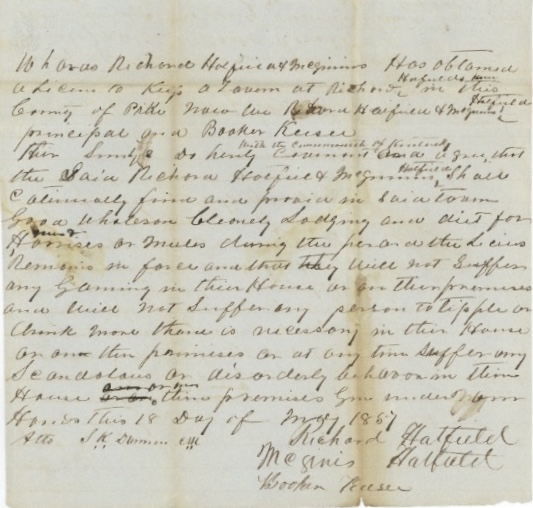 Whareas Richard Hatfield & Mcginnis Has obtained
Hatfields
a Licens to Keep a Tavern at Richard in this
County of Pike Now we Richard Hatfield & Mcginnis Hatfield
principal and Booker Keesee
With the Commonwealth of Kentucky
Ther Surety Do herby Covenant and agree that
the Said Richard Hatfield & Mcginnis Hatfield Shall
find and provid in Said tavern
Good Wholeson Cleanly Lodging and diet for
Horrises or Mules during the period the Licens
Remains in force and that they Will not Suffer
any Gaming in their House or on ther premises
and Will not Suffer any person to tipple or
drink more than is necessary in their House
or on ther premises or at any time Suffer any
Scandolous or disorderly behavor in their
House or on ther premises Givn under our
Hands this 18 Day of May 1857
Atts
Richard Hatfield
Mcginis Hatfield
Booker Keesee